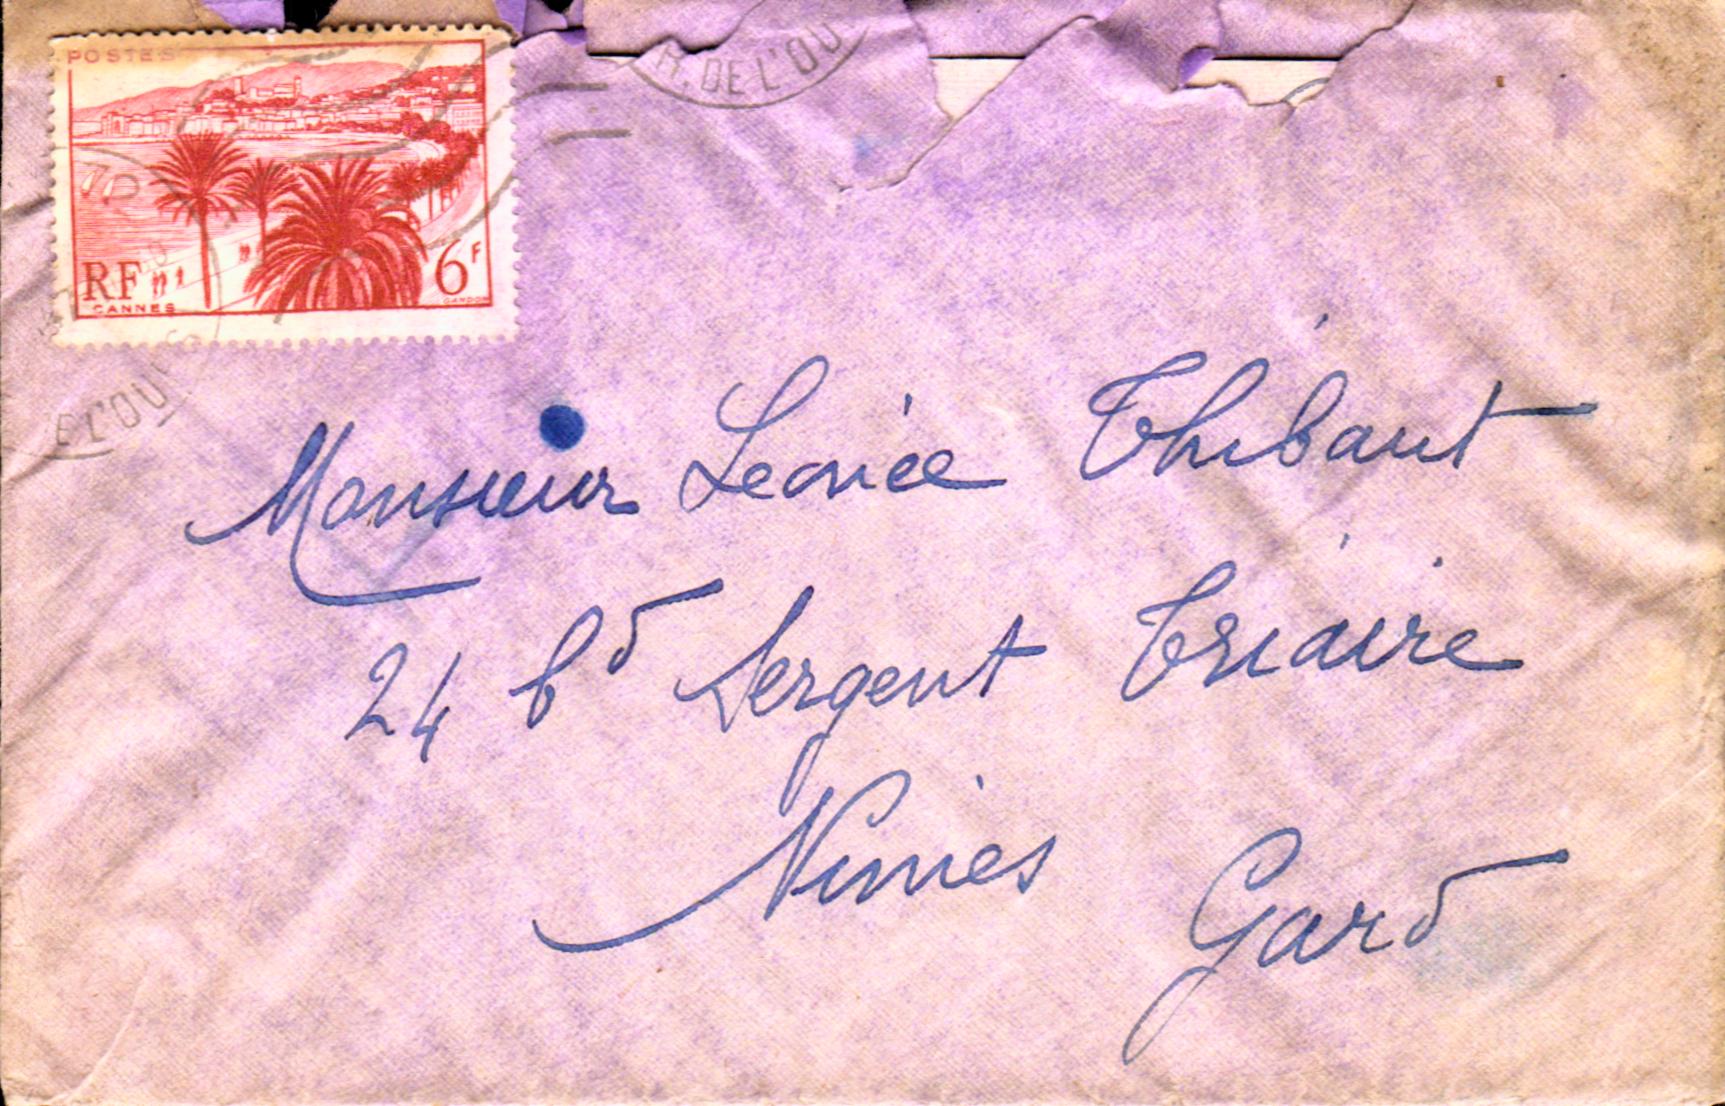 POSTES
R. DE L'OU
RF
6F
CANNES
GANDON
E L'OU
Monsieur Léonce Thibaut
24 bd Sergent Triaire
Nimes Gard